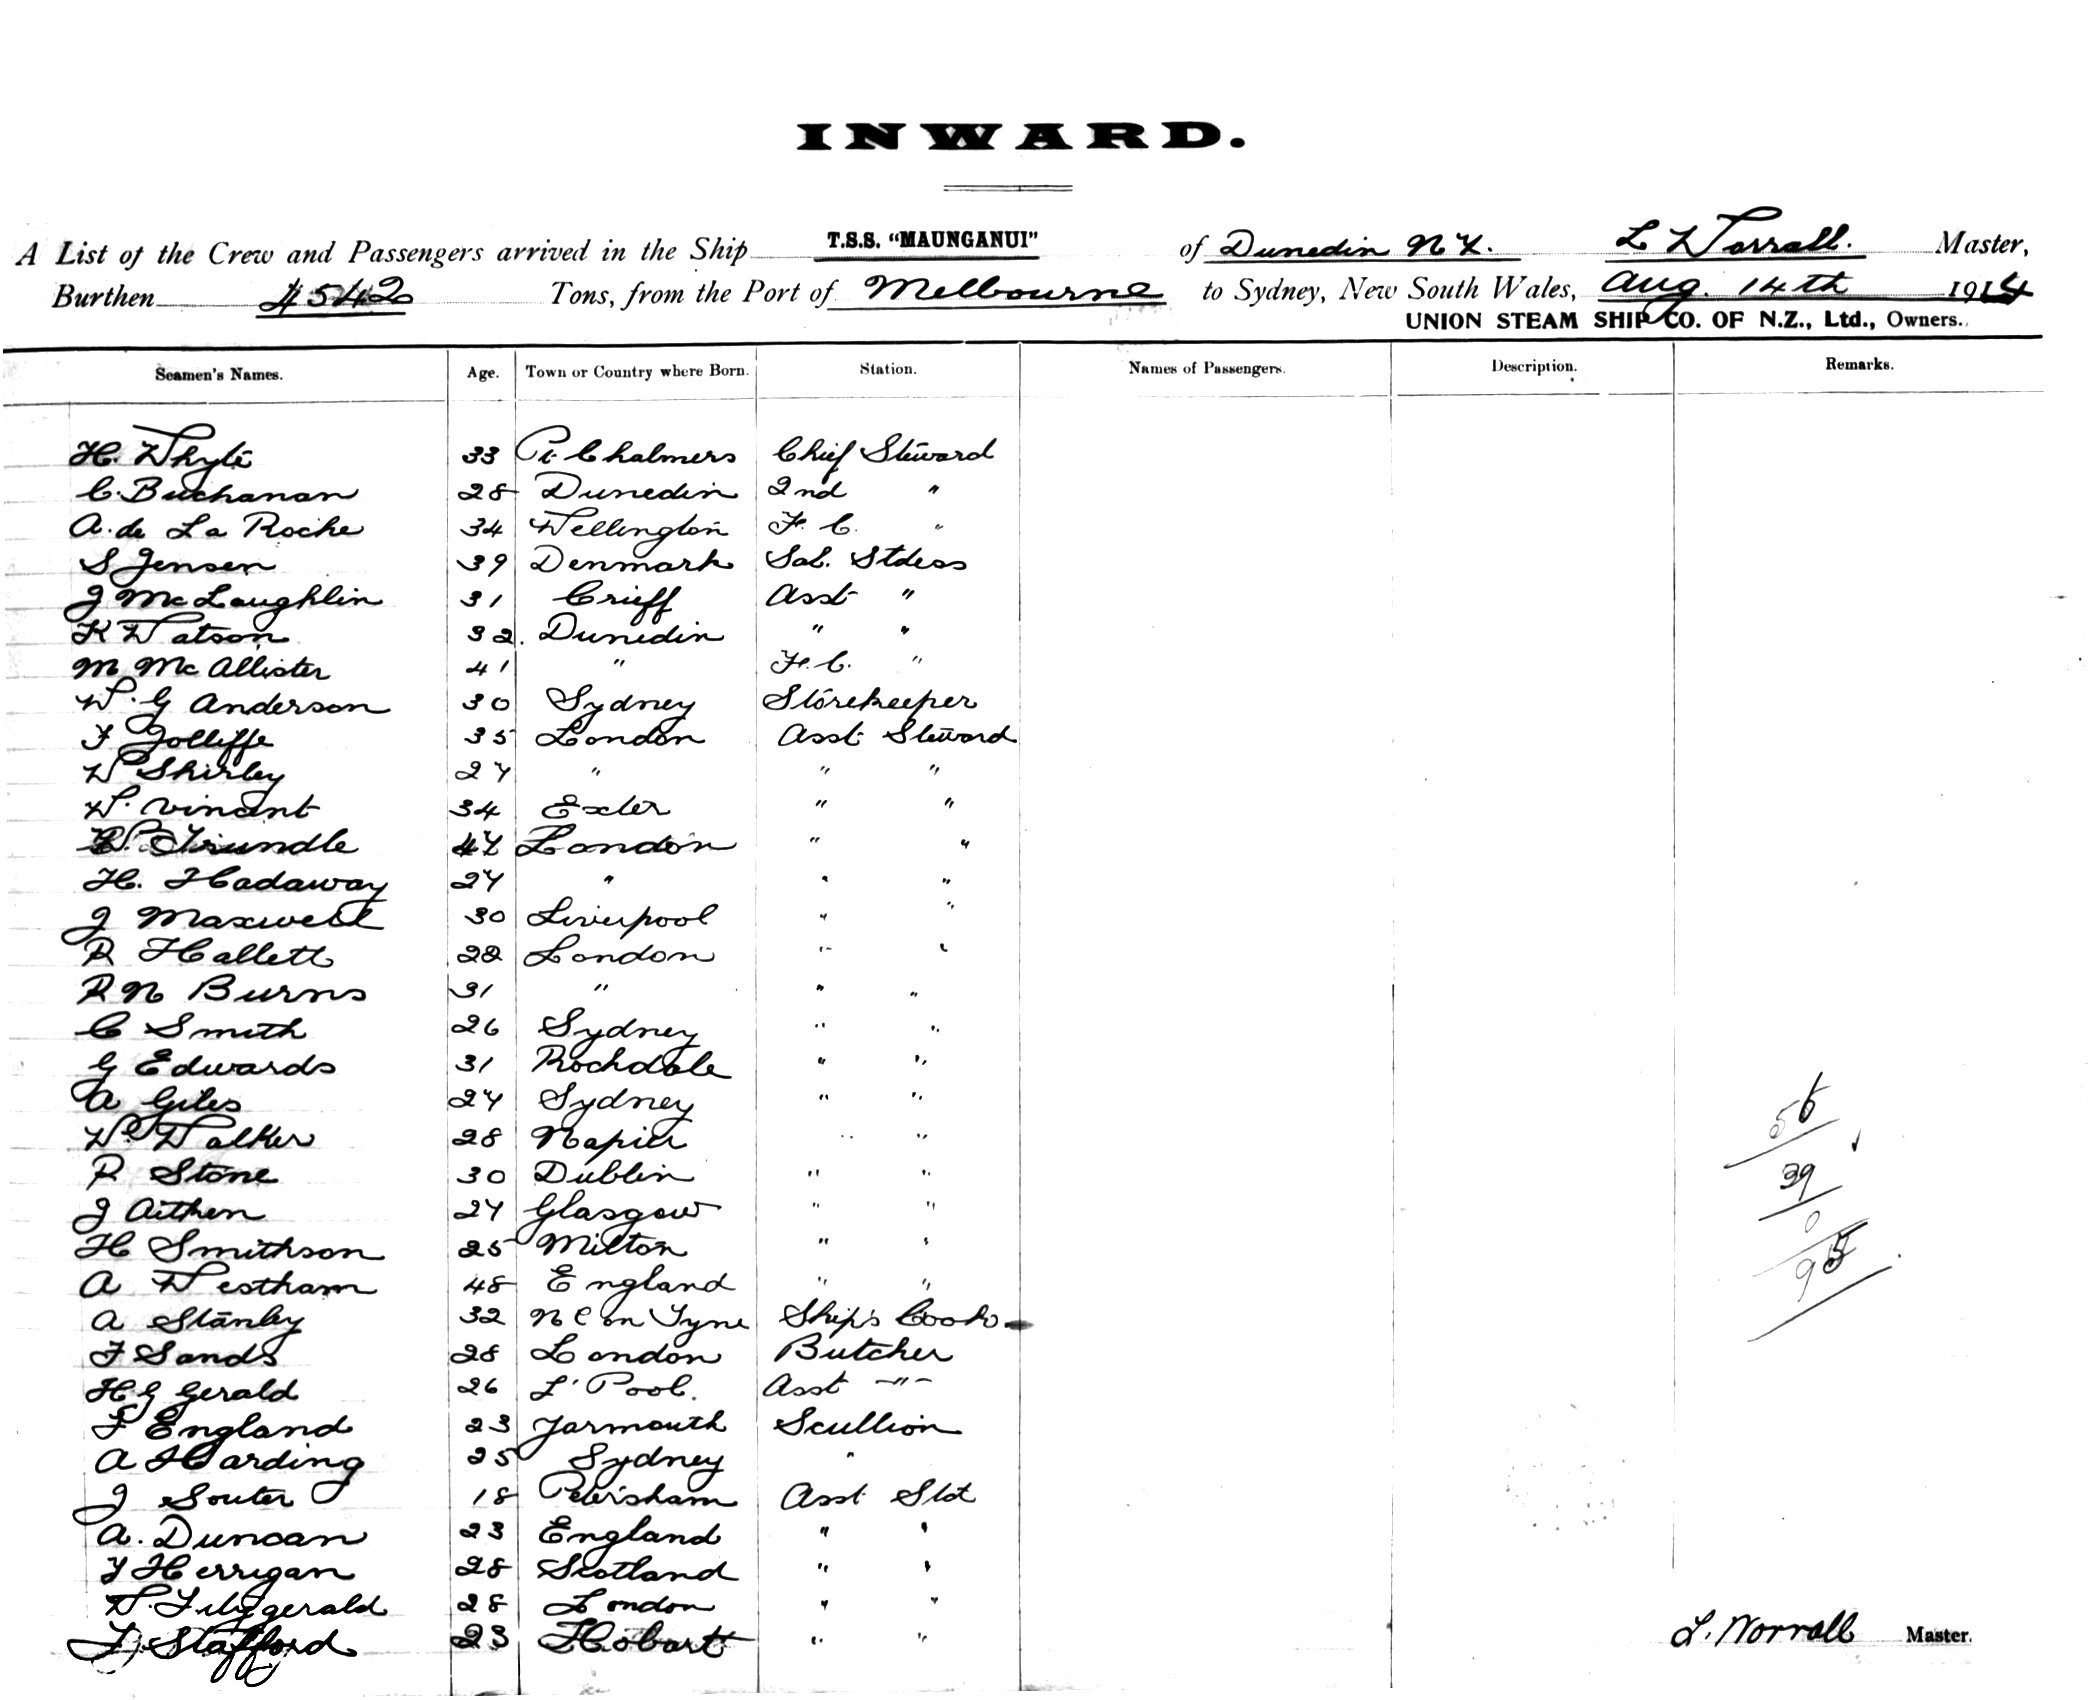 INWARD.
A List of the Crew and Passengers arrived in the Ship T.S.S. "MAUNGANUI" of Dunedin N.Z. L Worrall. Master,
Burthen 4542 Tons, from the Port of Melbourne to Sydney, New South Wales, Aug. 14th 1914
UNION STEAM SHIP CO. OF N.Z., Ltd., Owners.
Seamen's Names. Age. Town or Country where Born. Station. Names of Passengers. Description. Remarks.
H. Whyte 33 Pt Chalmers Chief Steward
C. Buchanan 28 Dunedin 2nd "
A. de La Roche 34 Wellington F. C. "
S Jensen 39 Denmark Sal. Stdess
J McLaughlin 31 Crieff Asst "
K Watson 32. Dunedin " "
M McAllister 41 " F. C. "
W. G Anderson 30 Sydney Storekeeper
F Jolliffe 35 London Asst Steward
W Shirley 27 " " "
W. Vincent 34 Exter " "
W. Trundle 47 London " "
H. Hadaway 27 " " "
J Maxwell 30 Liverpool " "
R Hallett 22 London " "
R N Burns 31 " " "
C Smith 26 Sydney " "
G Edwards 31 Rochdale " "
A Giles 27 Sydney " "
W Walker 28 Napier " "
R Stone 30 Dublin " "
J Aitken 27 Glasgow " "
H Smithson 25 Milton " "
A Westham 48 England " "
A Stanley 32 N C on Tyne Ship's Cook
F Sands 28 London Butcher
H. G Gerald 26 L'Pool. Asst -"-
F England 23 Yarmouth Scullion
A Harding 25 Sydney "
J Souter 18 Petersham Asst Std
A. Duncan 23 England " "
J Herrigan 28 Scotland " "
W. Fitzgerald 28 London " "
F. Stafford 23 Hobart " "
56
39
0
95
L. Worrall Master.